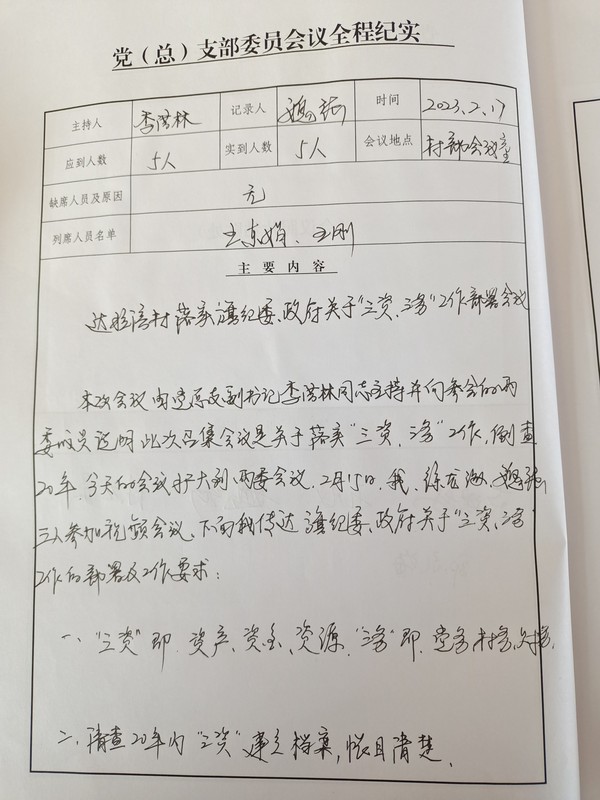 党（总）支部委员会议全程纪实
主持人 李洪林 记录人 时间 2023.2.17
应到人数 5人 实到人数 5人 会议地点 村部会议室
缺席人员及原因 无
列席人员名单 王东娟、王刚
主要内容
村落实旗纪委、政府关于“三资、三务”工作部署会议
本次会议由党总支副书记李洪林同志主持并向参会的两
委成员说明此次召集会议是关于落实“三资，三务”工作，倒查
20年，今天的会议扩大到两委会议，2月15日，我、徐
三人参加视频会议，下面我传达旗纪委、政府关于“三资、三务”
工作的部署及工作要求：
一、“三资”即 资产、资金、资源，“三务”即，党务、村务、财务，
二、清查20年内“三资”建立档案，账目清楚，